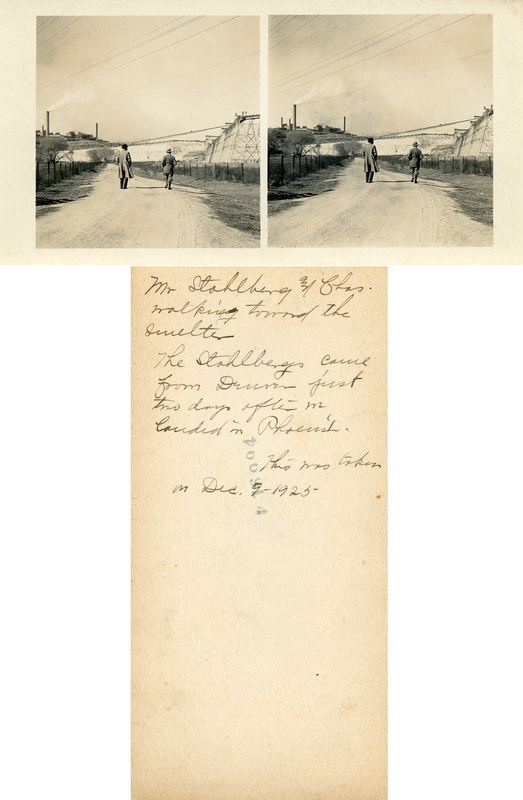 Mr Stohlberg & Chas.
walking toward the
smelter
The Stohlbergs came
from Denver just
two days after we
landed in Phoenix.
This was taken
on Dec. 9-1925-